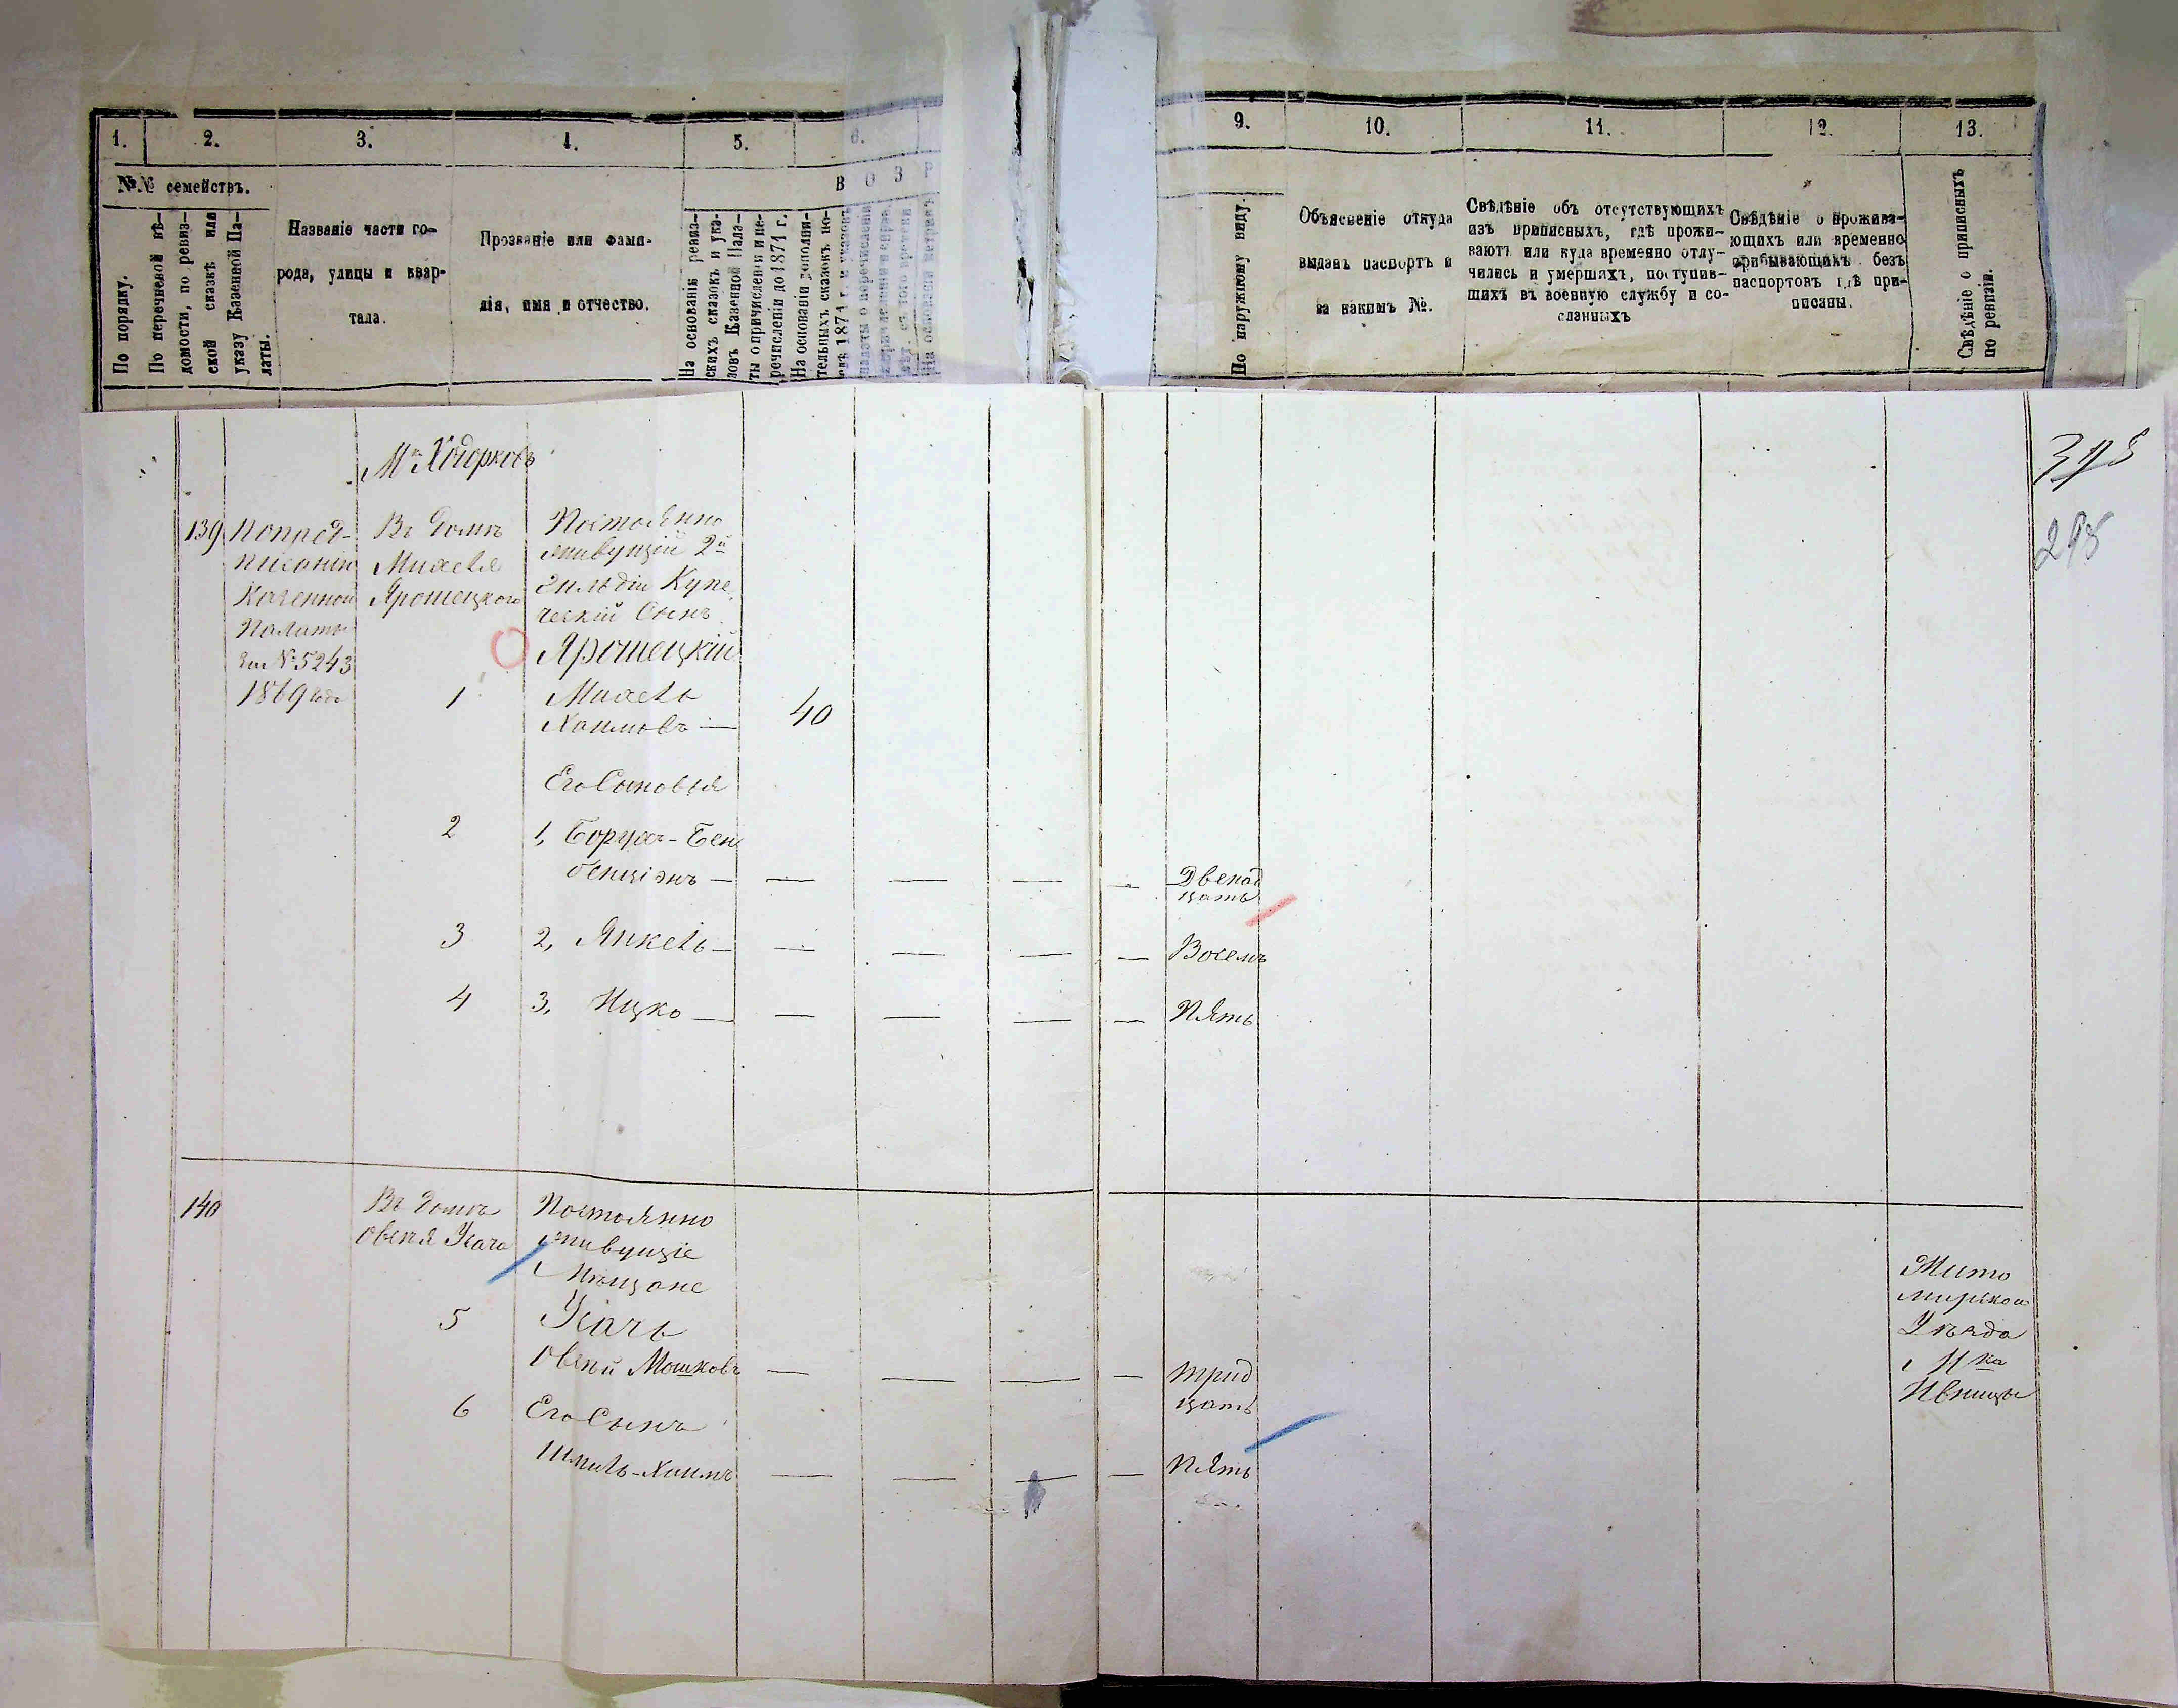 1. 2. 3. 4. 5. 6. 9. 10. 11. 12. 13.
№№ семействъ.
По порядку.
По перечневой вѣ-
домости, по ревиз-
ской сказкѣ или
указу Казенной Па-
латы.
Названіе части го-
рода, улицы и квар-
тала.
Прозваніе или фами-
лія, имя и отчество.
В О З Р
На основаніи ревиз-
скихъ сказокъ и ука-
зовъ Казенной Пала-
ты о причисленіи и пе-
речисленіи до 1871 г.
На основаніи дополни-
тельныхъ сказокъ по-
По наружному виду.
Объясненіе откуда
выданъ паспортъ и
за какимъ №.
Свѣдѣніе объ отсутствующихъ
изъ приписныхъ, гдѣ прожи-
ваютъ или куда временно отлу-
чились и умершихъ, поступив-
шихъ въ военную службу и со-
сланныхъ
Свѣдѣніе о прожива-
ющихъ или временно
пребывающихъ безъ
паспортовъ гдѣ при-
писаны.
Свѣдѣніе о приписныхъ
по ревизіи.
М. Ходорковъ
298
139
По пред-
писанію
Казенной
Палаты
за № 5243
1869 года
Въ домѣ
Михеля
Ярошецкого
Постоянно
живущій 2й
гильдіи Купе
ческій Сынъ
Ярошецкій
1 Михель
Хаимовъ — 40
Его Сыновья
2 1, Борухъ-Бен
бенціонъ — — — — — Двенад
цать
3 2, Янкель — — — — — Восемь
4 3, Ицко — — — — — Пять
140
Въ домѣ
Овсѣя Усача
Постоянно
живущіе
Мѣщане
5 Усачъ
Овсѣй Мошковъ — — — — трид
цать
6 Его Сынъ
Шмиль-Хаимъ — — — — Пять
Жито
мирскою
Уѣзда
М ка
Ивницы